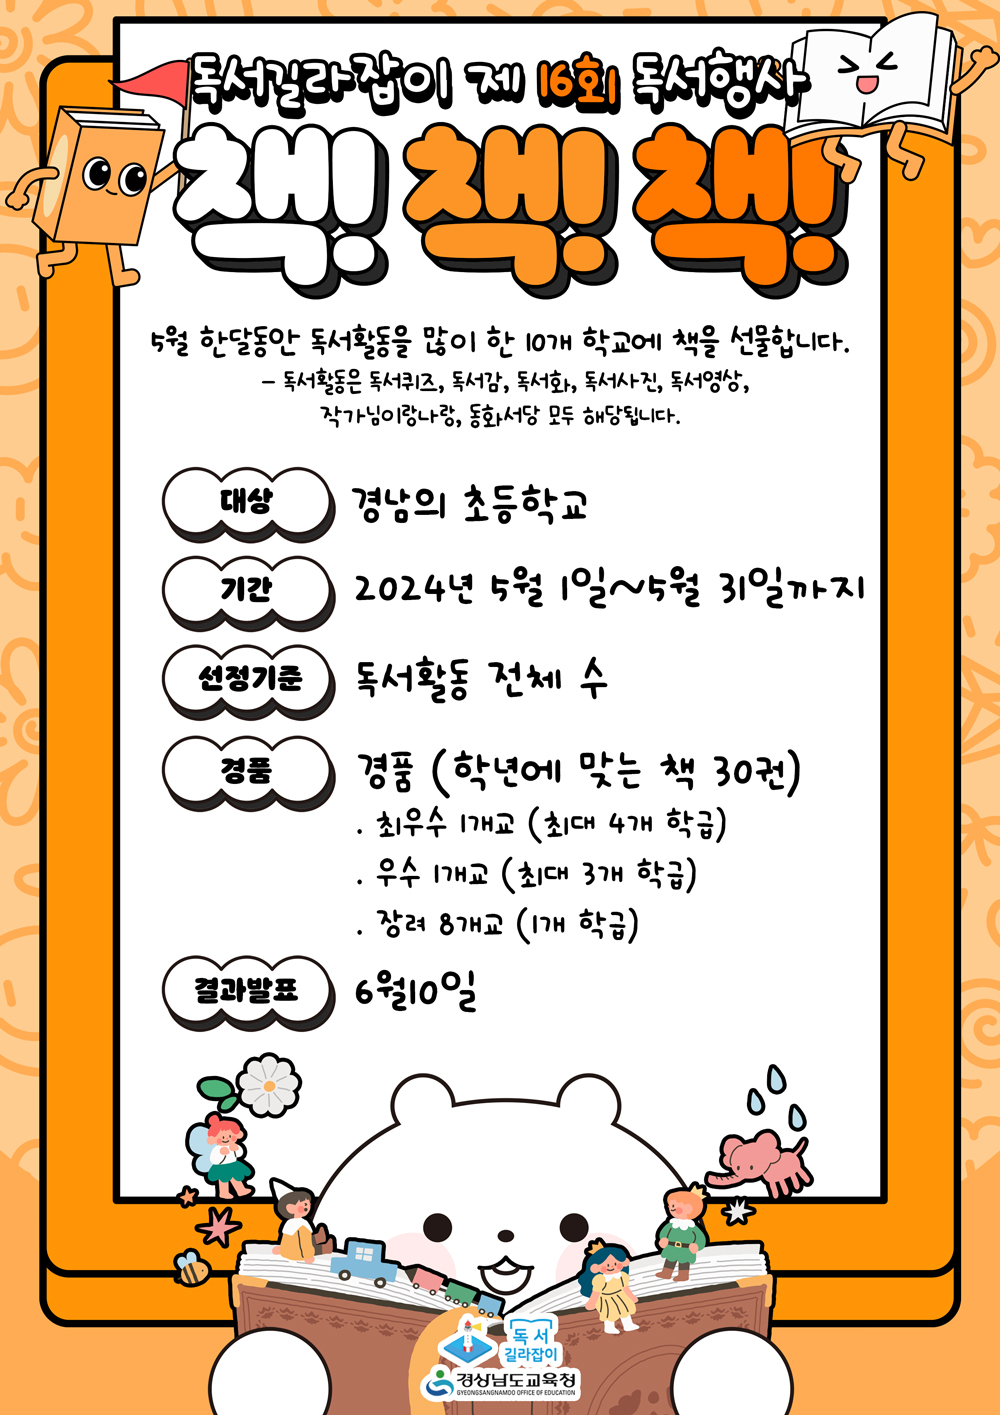 독서길라잡이 제 16회 독서행사
책! 책! 책!
5월 한달동안 독서활동을 많이 한 10개 학교에 책을 선물합니다.
- 독서활동은 독서퀴즈, 독서감, 독서화, 독서사진, 독서영상,
작가님이랑나랑, 동화서당 모두 해당됩니다.
대상 경남의 초등학교
기간 2024년 5월 1일~5월 31일까지
선정기준 독서활동 전체 수
경품 경품 (학년에 맞는 책 30권)
. 최우수 1개교 (최대 4개 학급)
. 우수 1개교 (최대 3개 학급)
. 장려 8개교 (1개 학급)
결과발표 6월10일
독서
길라잡이
경상남도교육청
GYEONGSANGNAMDO OFFICE OF EDUCATION